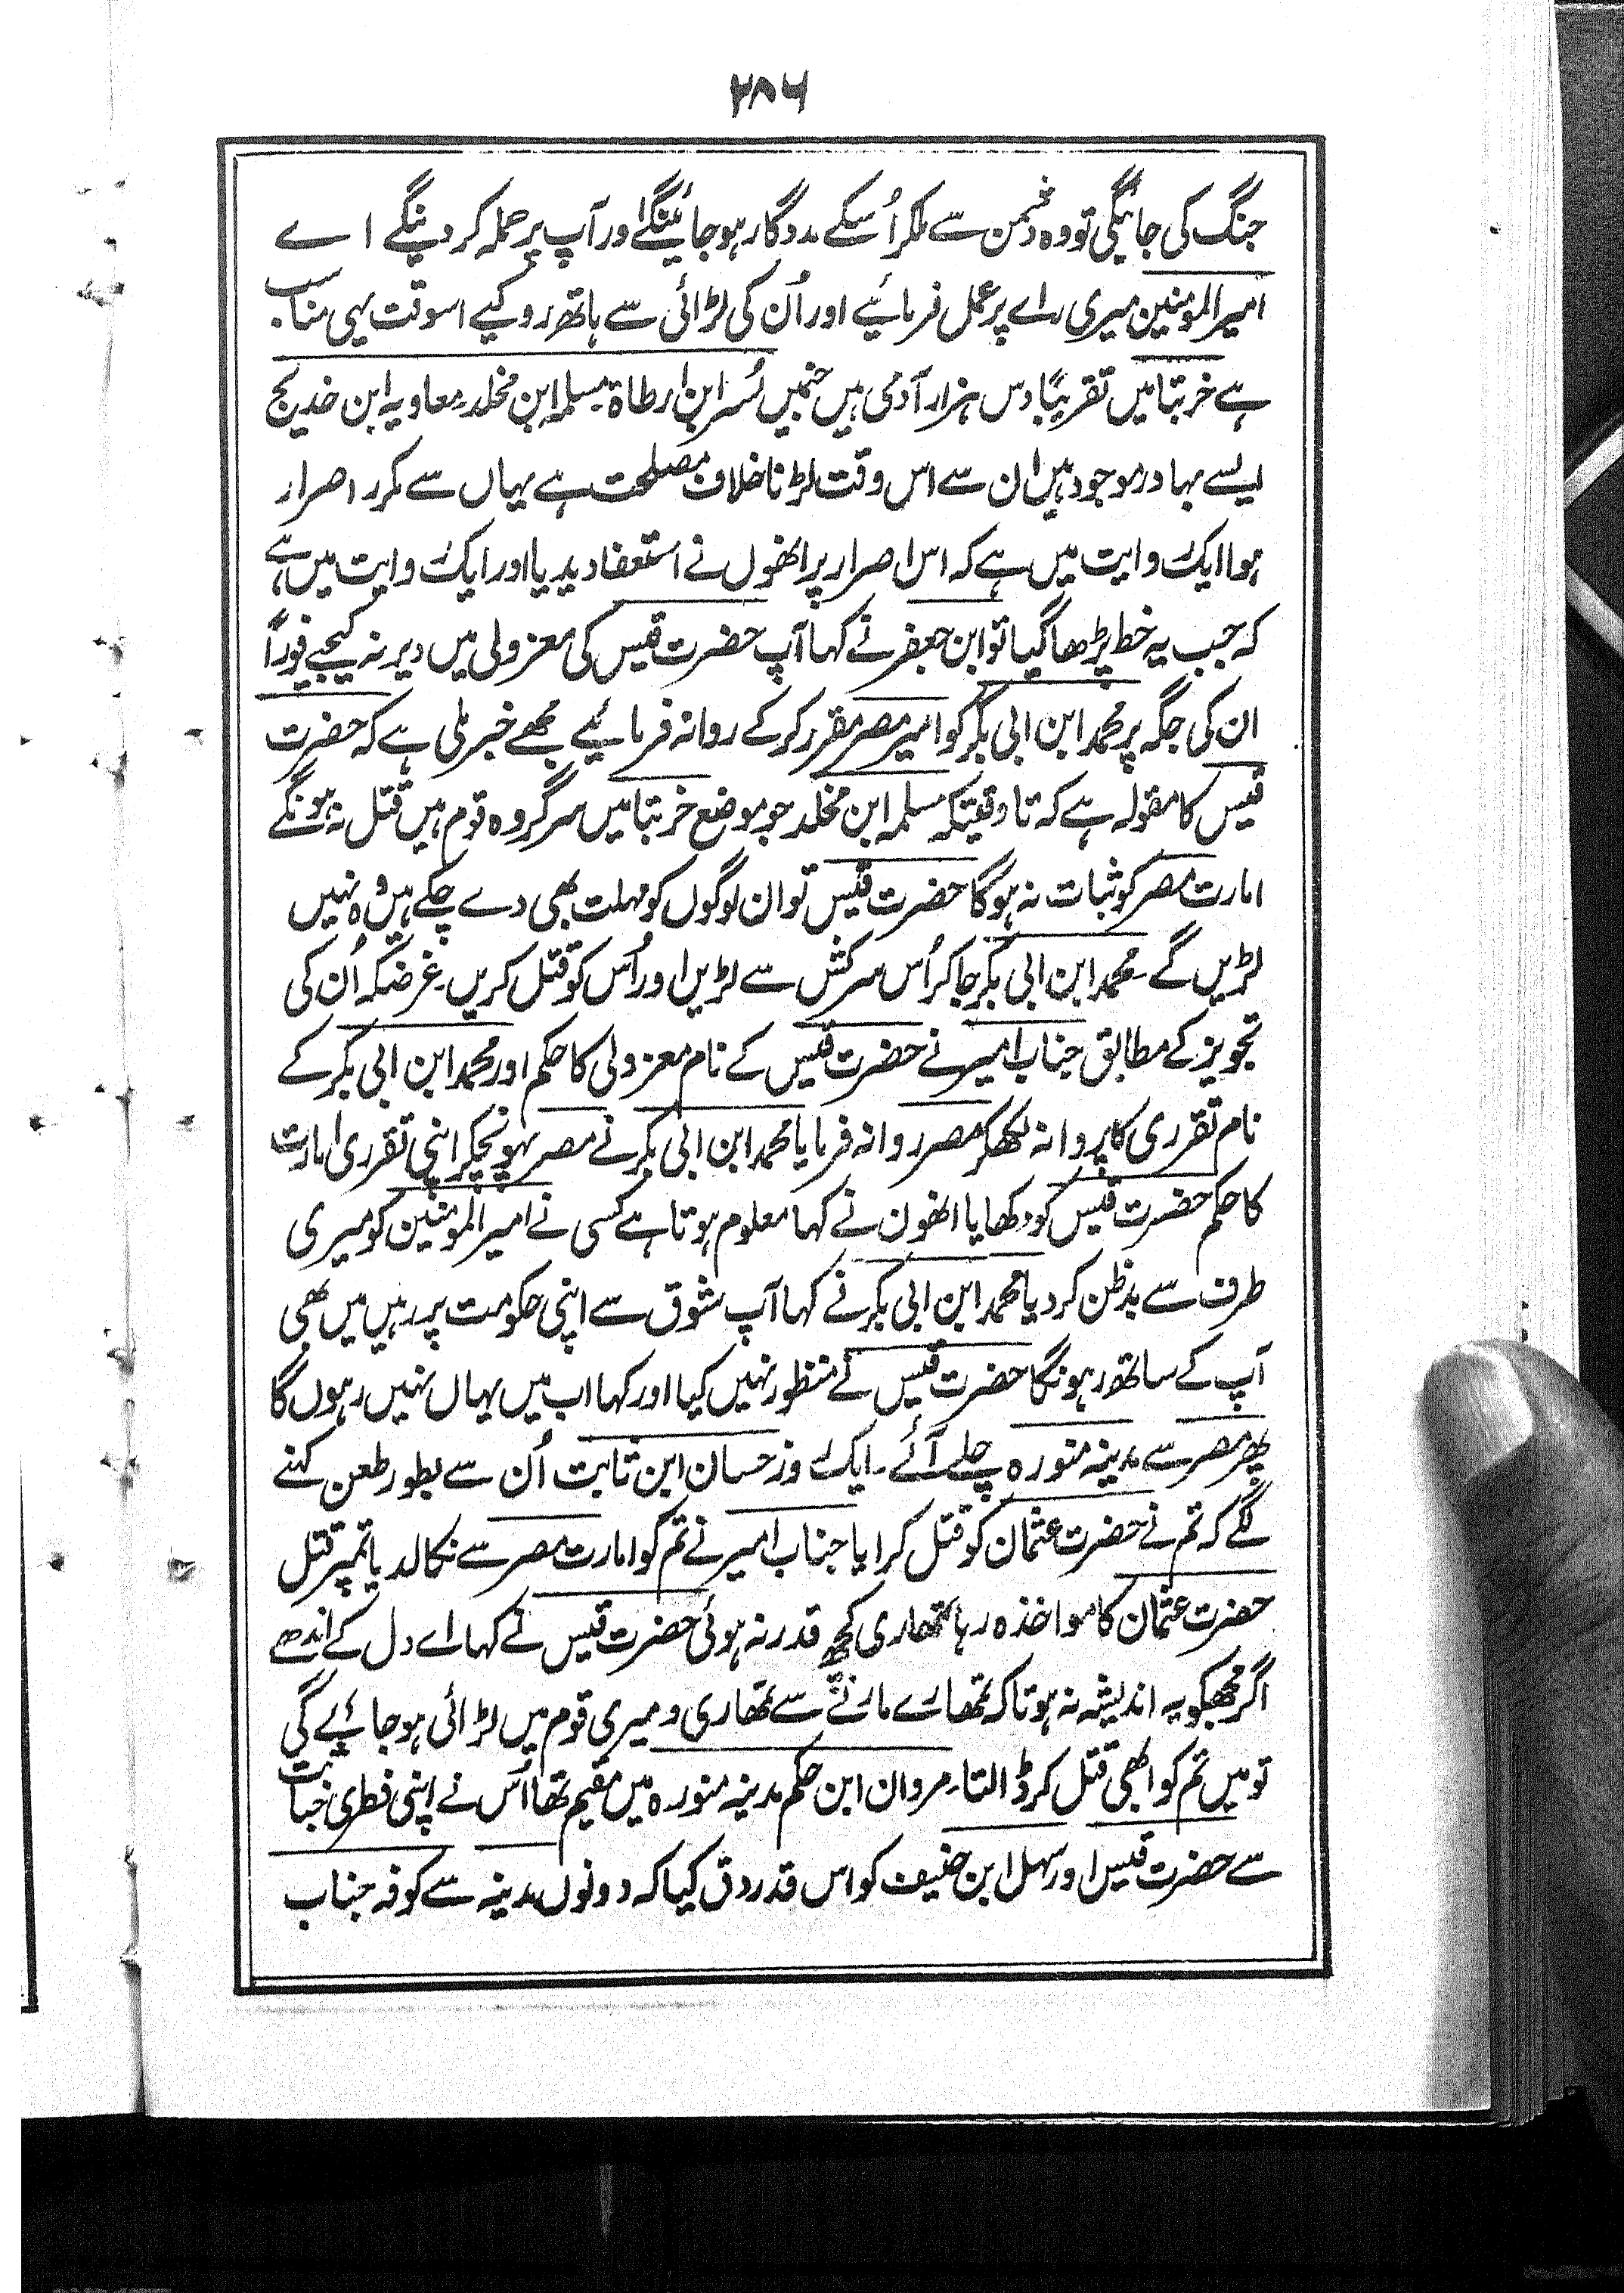 ۲۸۶
جنگ کی جائیگی تو وہ دشمن سے ملکر اُسکے مددگار ہو جائینگے اور آپ پر حملہ کر دینگے اے
امیر المومنین میری راے پر عمل فرمائیے اور اُن کی لڑائی سے ہاتھ روکیے اسوقت یہی مناسب
ہے خربتا میں تقریبًا دس ہزار آدمی ہیں جنمیں بُسر ابن ارطاۃ مسلمہ ابن مخلد۔ معاویہ ابن خدیج
ایسے بہادر موجود ہیں ان سے اس وقت لڑنا خلاف مصلحت ہے یہاں سے مکرر اصرار
ہوا ایک روایت میں ہے کہ اس اصرار پر انھوں نے استعفا دیدیا اور ایک روایت میں ہے
کہ جب یہ خط پڑھا گیا تو ابن جعفر نے کہا آپ حضرت قیس کی معزولی میں دیر نہ کیجیے فوراً
ان کی جگہ پر محمد ابن ابی بکر کو امیر مصر مقرر کر کے روانہ فرمائیے مجھے خبر ملی ہے کہ حضرت
قیس کا مقولہ ہے کہ تا وقتیکہ مسلمہ ابن مخلد جو موضع خربتا میں سرگروہ قوم ہیں قتل نہ ہونگے
امارت مصر کو ثبات نہ ہوگا حضرت قیس تو ان لوگوں کو مہلت بھی دے چکے ہیں وہ نہیں
لڑیں گے۔ محمد ابن ابی بکر جا کر اُس سرکش سے لڑیں اور اُس کو قتل کریں۔ غرضکہ اُن کی
تجویز کے مطابق جناب امیر نے حضرت قیس کے نام معزولی کا حکم اور محمد ابن ابی بکر کے
نام تقرری کا پروانہ لکھکر مصر روانہ فرمایا محمد ابن ابی بکر نے مصر پہونچکر اپنی تقرری امارت
کا حکم حضرت قیس کو دکھایا انھون نے کہا معلوم ہوتا ہے کسی نے امیر المومنین کو میری
طرف سے بدظن کر دیا محمد ابن ابی بکر نے کہا آپ شوق سے اپنی حکومت پر رہیں میں بھی
آپ کے ساتھ رہونگا حضرت قیس نے منظور نہیں کیا اور کہا اب میں یہاں نہیں رہوں گا
پھر مصر سے مدینہ منورہ چلے آئے۔ ایک روز حسان ابن ثابت اُن سے بطور طعن کہنے
لگے کہ تم نے حضرت عثمان کو قتل کرایا جناب امیر نے تم کو امارت مصر سے نکالدیا تمپر قتل
حضرت عثمان کا مواخذہ رہا تمھاری کچھ قدر نہ ہوئی حضرت قیس نے کہا اے دل کے اندھے
اگر مجھکو یہ اندیشہ نہ ہوتا کہ تمھارے مارنے سے تمھاری و میری قوم میں لڑائی ہو جائے گی
تو میں تم کو ابھی قتل کر ڈالتا۔ مروان ابن حکم مدینہ منورہ میں مقیم تھا اُس نے اپنی فطری خباثت
سے حضرت قیس اور سہل ابن حنیف کو اس قدر دق کیا کہ دونوں مدینہ سے کوفہ جناب